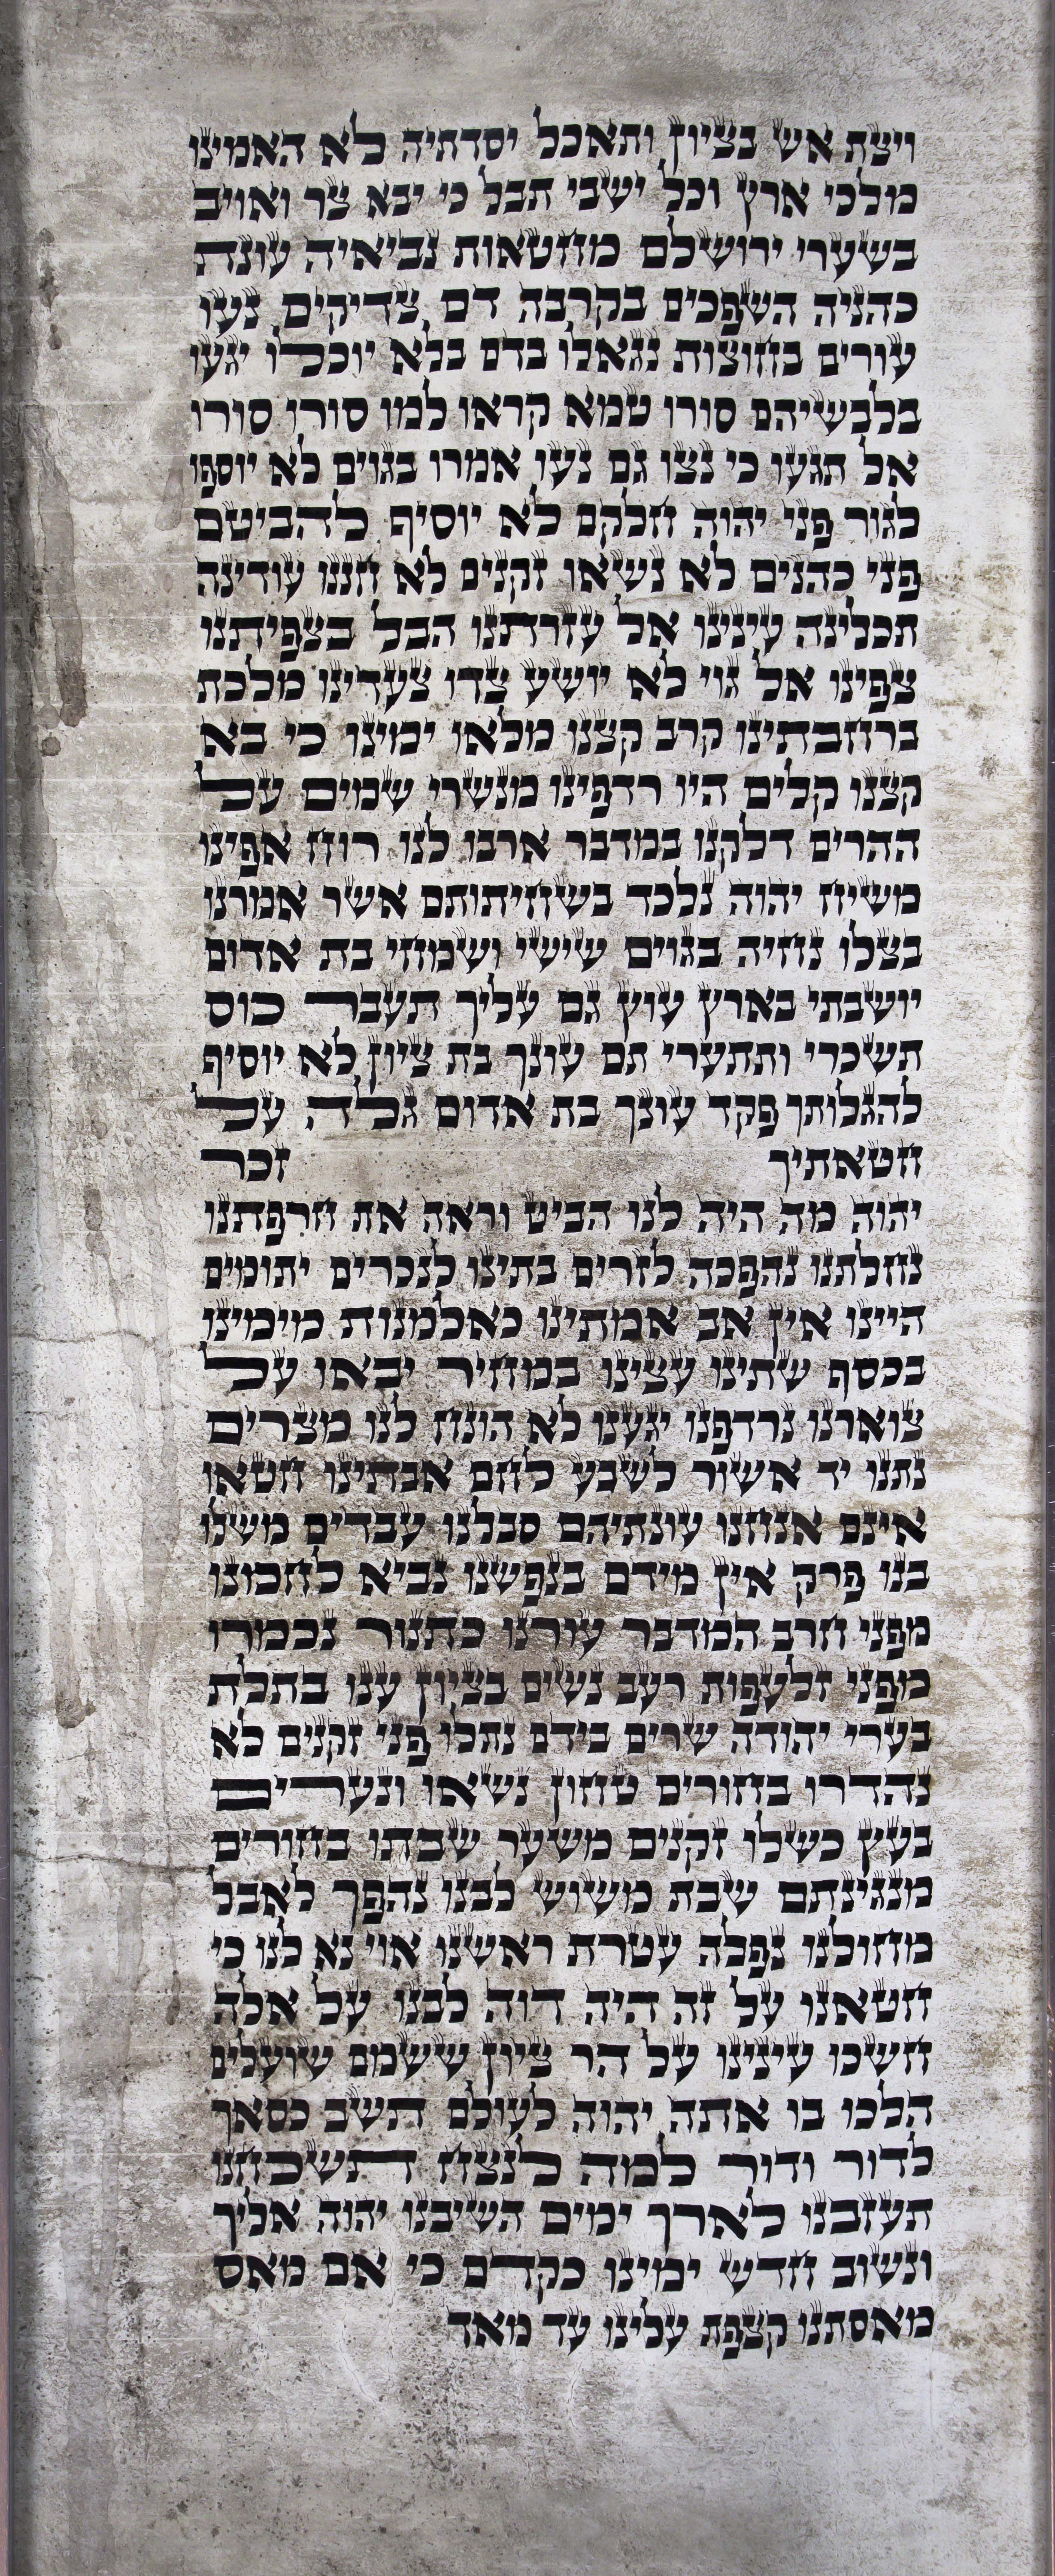 ויצת אש בציון ותאכל יסדתיה לא האמינו
מלכי ארץ וכל ישבי תבל כי יבא צר ואויב
בשערי ירושלם מחטאות נביאיה עונת
כהניה השפכים בקרבה דם צדיקים נעו
עורים בחוצות נגאלו בדם בלא יוכלו יגעו
בלבשיהם סורו טמא קראו למו סורו סורו
אל תגעו כי נצו גם נעו אמרו בגוים לא יוספו
לגור פני יהוה חלקם לא יוסיף להביטם
פני כהנים לא נשאו זקנים לא חננו עודינה
תכלינה עינינו אל עזרתנו הבל בצפיתנו
צפינו אל גוי לא יושע צדו צעדינו מלכת
ברחבתינו קרב קצנו מלאו ימינו כי בא
קצנו קלים היו רדפינו מנשרי שמים על
ההרים דלקנו במדבר ארבו לנו רוח אפינו
משיח יהוה נלכד בשחיתותם אשר אמרנו
בצלו נחיה בגוים שישי ושמחי בת אדום
יושבתי בארץ עוץ גם עליך תעבר כוס
תשכרי ותתערי תם עונך בת ציון לא יוסיף
להגלותך פקד עונך בת אדום גלה על
חטאתיך זכר
יהוה מה היה לנו הביט וראה את חרפתנו
נחלתנו נהפכה לזרים בתינו לנכרים יתומים
היינו אין אב אמתינו כאלמנות מימינו
בכסף שתינו עצינו במחיר יבאו על
צוארנו נרדפנו יגענו לא הונח לנו מצרים
נתנו יד אשור לשבע לחם אבתינו חטאו
אינם אנחנו עונתיהם סבלנו עבדים משלו
בנו פרק אין מידם בנפשנו נביא לחמנו
מפני חרב המדבר עורנו כתנור נכמרו
מפני זלעפות רעב נשים בציון ענו בתלת
בערי יהודה שרים בידם נתלו פני זקנים לא
נהדרו בחורים טחון נשאו ונערים
בעץ כשלו זקנים משער שבתו בחורים
מנגינתם שבת משוש לבנו נהפך לאבל
מחולנו נפלה עטרת ראשנו אוי נא לנו כי
חטאנו על זה היה דוה לבנו על אלה
חשכו עינינו על הר ציון ששמם שועלים
הלכו בו אתה יהוה לעולם תשב כסאך
לדור ודור למה לנצח תשכחנו
תעזבנו לארך ימים השיבנו יהוה אליך
ונשוב חדש ימינו כקדם כי אם מאס
מאסתנו קצפת עלינו עד מאד